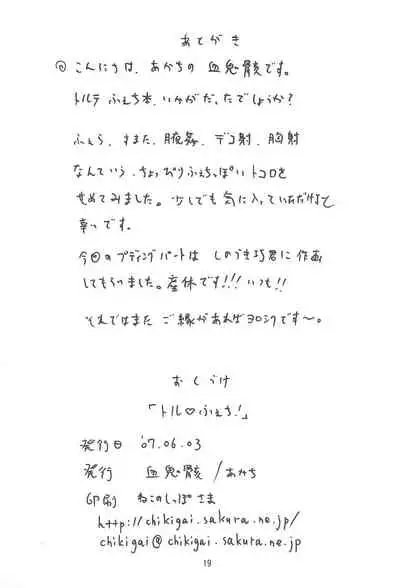 あとがき
◎ こんにちは、あかちの 血鬼骸です。
トルテ ふぇち本、いかがだったでしょうか?
ふぇら、すまた、腋姦、デコ射、胸射
なんていう、ちょっぴりふぇちっぽいトコロを
せめてみました。少しでも気に入っていただけると
幸いです。
今回のプディングパートは しのづき巧君に 作画
してもらいました。産休です!!! いつも!!
それではまた ご縁があればヨロシクです〜。
おくづけ
「トル♡ふぇち!」
発行日 '07.06.03
発行 血鬼骸/あかち
印刷 ねこのしっぽさま
http://chikigai.sakura.ne.jp/
chikigai@chikigai.sakura.ne.jp
19